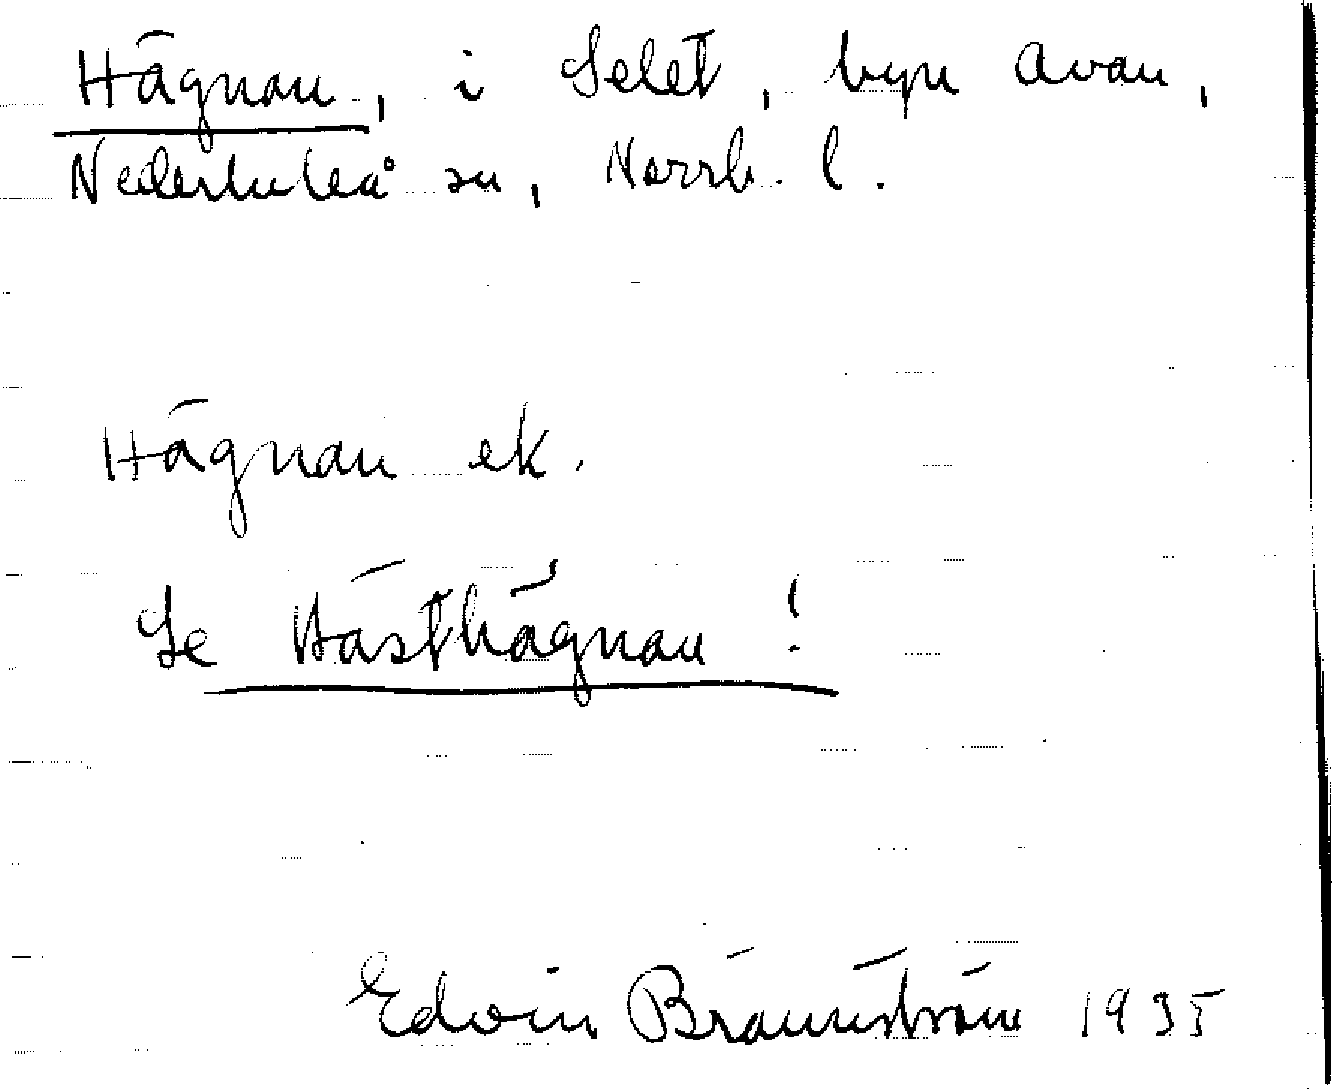 Hägnan, i Selet, byn Avan,
Nederluleå sn, Norrb. l.
Hägnan ek.
Se Hästhägnan!
Edvin Brännström 1935